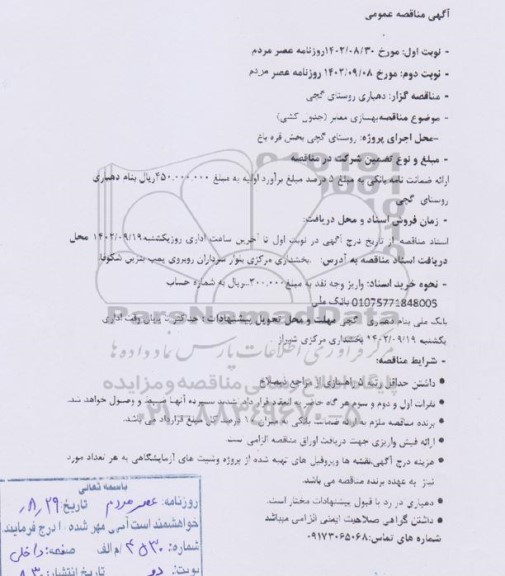 آگهی مناقصه عمومی
- نوبت اول: مورخ ۱۴۰۲/۰۸/۳۰روزنامه عصر مردم
- نوبت دوم: مورخ ۱۴۰۲/۰۹/۰۸ روزنامه عصر مردم
- مناقصه گزار: دهیاری روستای گچی
- موضوع مناقصهبهسازی معابر (جدول کشی)
-محل اجرای پروژه: روستای گچی بخش قره باغ
- مبلغ و نوع تضمین شرکت در مناقصه
ارائه ضمانت نامه بانکی به مبلغ ۵ درصد مبلغ برآورد اولیه به مبلغ ۴۵۰.۰۰۰.۰۰۰ریال بنام دهیاری
روستای گچی
- زمان فروش اسناد و محل دریافت:
اسناد مناقصه از تاریخ درج آگهی در نوبت اول تا آخرین ساعت اداری روزیکشنبه۱۴۰۲/۰۹/۱۹ محل
دریافت اسناد مناقصه به آدرس: بخشداری مرکزی بلوار سرداران روبروی پمپ بنزین شکوفا
- نحوه خرید اسناد: واریز وجه نقد به مبلغ۳۰۰.۰۰۰ریال به شماره حساب
01075771848005 بانک ملی
بانک ملی بنام دهیاری گچی مهلت و محل تحویل پیشنهادات: حداکثر تا پایان وقت اداری
یکشنبه ۱۴۰۲/۰۹/۱۹ بخشداری مرکزی شیراز
- شرایط مناقصه:
● داشتن حداقل رتبه ۵ راهسازی از مراجع ذیصلاح
● نفرات اول و دوم و سوم هر گاه حاضر به انعقاد قرارداد نشدند سپرده آنها ضبط و وصول خواهد شد.
● برنده مناقصه ملزم به ارائه ضمانت بانکی به میزان ۱۰ درصد کل مبلغ قرارداد می باشد.
● ارائه فیش واریزی جهت دریافت اوراق مناقصه الزامی است
● هزینه درج آگهی،نقشه ها وپروفیل های تهیه شده از پروژه وتست های آزمایشگاهی به هر تعداد مورد
نیاز به عهده برنده مناقصه می باشد.
● دهیاری در رد یا قبول پیشنهادات مختار است.
● داشتن گواهی صلاحیت ایمنی الزامی میباشد
شماره های تماس: ۰۹۱۷۳۰۶۵۰۶۸
باسمه تعالی
روزنامه: عصر مردم تاریخ: ۸٫۲۹
خواهشمند است آگهی مهر شده را درج فرمایید
شماره: ۴۵۳۰/م الف صفحه: داخلی
نوبت: دو تاریخ انتشار: ۸٫۳۰
ParsNamadData
مرکز فرآوری اطلاعات پارس نماد داده ها
پایگاه اطلاع رسانی مناقصه و مزایده
۰۲۱-۸۸۳۴۹۶۷۰-۵